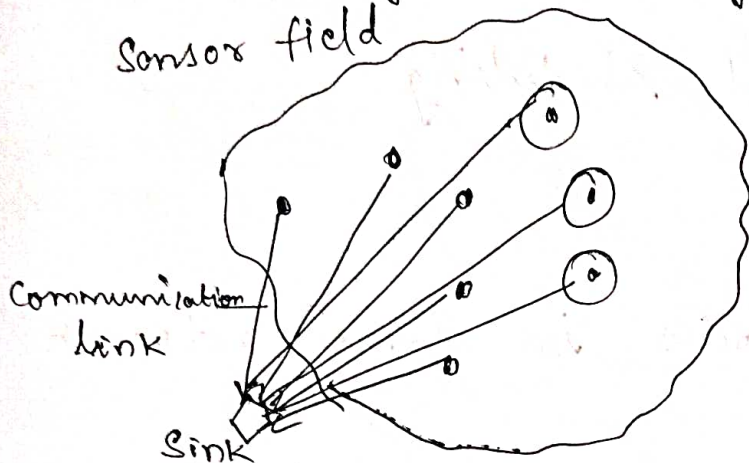 Sensor field
Communication
link
Sink